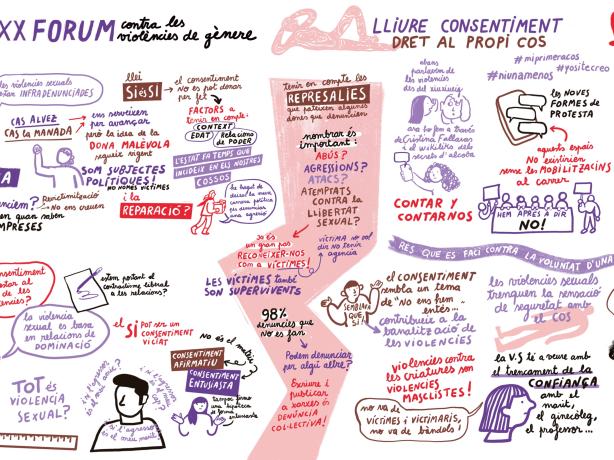 XX FORUM contra les
violències de gènere
LLIURE CONSENTIMENT
DRET AL PROPI COS
les violències sexuals
estan INFRADENUNCIADES
CAS ALVEZ
CAS la MANADA
ens serveixen
per avançar
però la idea de la
DONA MALÈVOLA
segueix vigent
llei
SíéSí
el consentiment
no es pot donar
per fet
FACTORS a
tenir en compte:
CONTEXT
EDAT
Relacions
de PODER
L'ESTAT FA TEMPS QUE
INCIDEIX EN ELS NOSTRES
COSSOS
SOM SUBJECTES
POLÍTIQUES!
NO NOMÉS VÍCTIMES
Revictimització
No ens creuen
en quan sabén
EMPRESES
i la
REPARACIÓ?
tenir en compte les
REPRESÀLIES
que pateixen algunes
dones que denuncien
nombrar és
important:
ABÚS?
AGRESSIONS?
ATACS?
ATEMPTATS
CONTRA LA
LLIBERTAT
SEXUAL?
és
un gran pas
RECONÈIXER-NOS
com a VÍCTIMES!
VÍCTIMA no vol
dir NO tenir
agencia
LES VÍCTIMES també
SON SUPERVIVENTS
98%
denúncies que
no es fan
Podem denunciar
per algú altre?
Escriure i
publicar
a xarxes és
DENÚNCIA
COL·LECTIVA!
abans
parlàvem de
les violències
des del
ara ho fem a través
de Cristina Fallaras
o el wikileaks dels
secrets d'alcoba
CONTAR Y
CONTARNOS
#miprimeracos
#yositecreo
#niunamenos
les NOVES
FORMES de
PROTESTA
aquests espais
NO existirien
sense les MOBILITZACIONS
al carrer
HEM APRÈS A DIR
NO!
RES QUE ES FACI CONTRA LA VOLUNTAT D'UNA
consentiment
estem portant el
contractisme liberal
a les relacions?
la violència
sexual es basa
en relacions de
DOMINACIÓ
el SÍ POT SER UN
CONSENTIMENT
VICIAT
No és el mateix
CONSENTIMENT
AFIRMATIU
CONSENTIMENT
ENTUSIASTA
TOT és
violència
SEXUAL?
SEMBLAVA
QUE
SÍ!
el CONSENTIMENT
sembla un tema
de "No ens fem
entés..."
contribueix a la
banalització de
les VIOLÈNCIES
violències contra
les criatures son
VIOLÈNCIES
MASCLISTES!
no va de
víctimes i victimaris,
no va de bàndols!
les violències sexuals
trenquen la sensació
de seguretat amb
el COS
la V.S té a veure amb
el trencament de la
CONFIANÇA
amb el
marit, el
ginecòleg,
el professor...